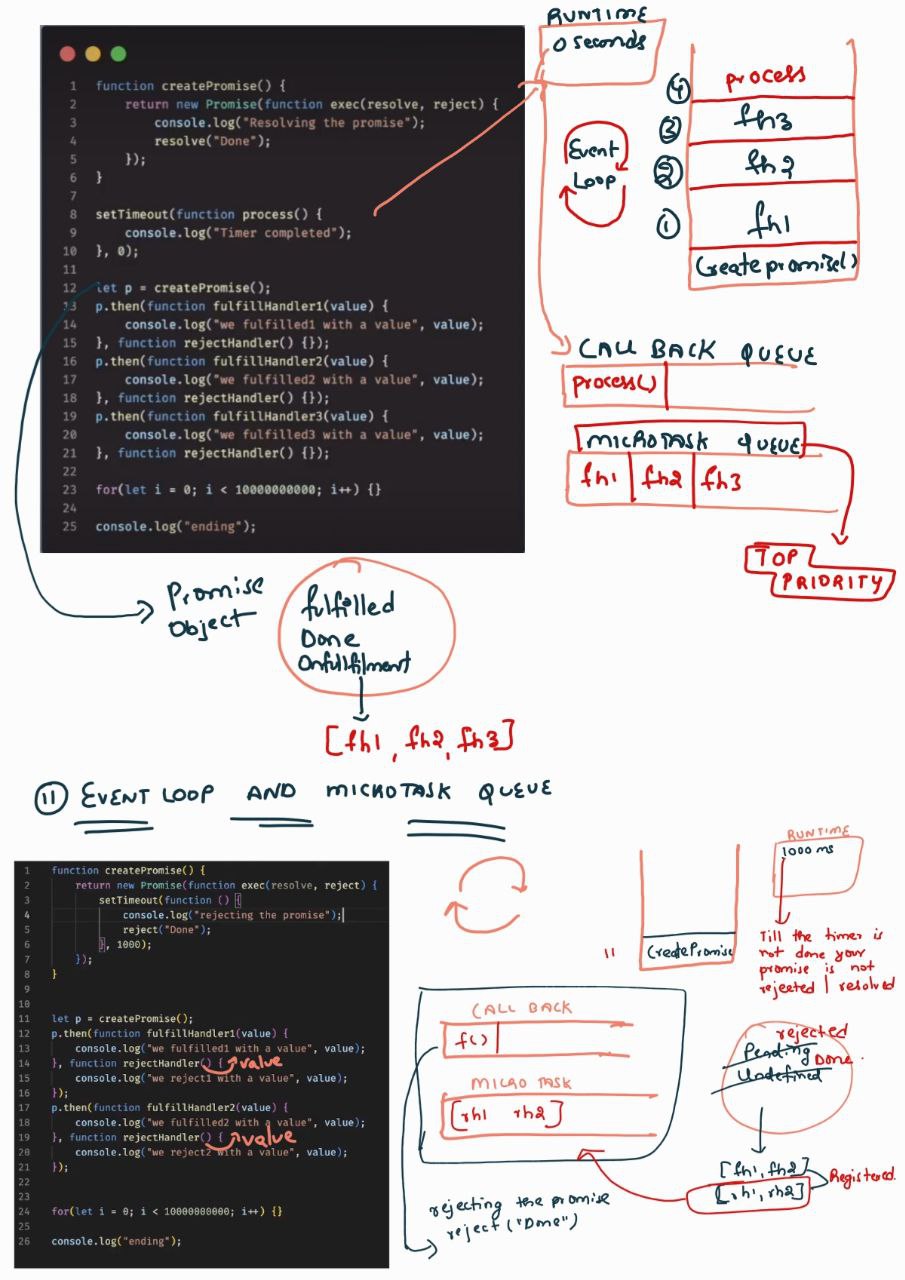 RUNTIME
0 seconds
1 function createPromise() {
2 return new Promise(function exec(resolve, reject) {
3 console.log("Resolving the promise");
4 resolve("Done");
5 });
6 }
7
8 setTimeout(function process() {
9 console.log("Timer completed");
10 }, 0);
11
12 let p = createPromise();
13 p.then(function fulfillHandler1(value) {
14 console.log("we fulfilled1 with a value", value);
15 }, function rejectHandler() {});
16 p.then(function fulfillHandler2(value) {
17 console.log("we fulfilled2 with a value", value);
18 }, function rejectHandler() {});
19 p.then(function fulfillHandler3(value) {
20 console.log("we fulfilled3 with a value", value);
21 }, function rejectHandler() {});
22
23 for(let i = 0; i < 10000000000; i++) {}
24
25 console.log("ending");
Event
Loop
④ process
③ fh3
② fh2
① fh1
Createpromise()
CALL BACK QUEUE
process()
MICROTASK QUEUE
fh1 fh2 fh3
TOP
PRIORITY
Promise
Object
fulfilled
Done
Onfullfilment
[fh1, fh2, fh3]
⑪ EVENT LOOP AND MICROTASK QUEUE
1 function createPromise() {
2 return new Promise(function exec(resolve, reject) {
3 setTimeout(function () {
4 console.log("rejecting the promise");
5 reject("Done");
6 }, 1000);
7 });
8 }
9
10
11 let p = createPromise();
12 p.then(function fulfillHandler1(value) {
13 console.log("we fulfilled1 with a value", value);
14 }, function rejectHandler() { value
15 console.log("we reject1 with a value", value);
16 });
17 p.then(function fulfillHandler2(value) {
18 console.log("we fulfilled2 with a value", value);
19 }, function rejectHandler() { value
20 console.log("we reject2 with a value", value);
21 });
22
23
24 for(let i = 0; i < 10000000000; i++) {}
25
26 console.log("ending");
11
CreatePromise
RUNTIME
1000 ms
Till the timer is
not done your
promise is not
rejected | resolved
CALL BACK
f()
MICRO TASK
[rh1 rh2]
rejecting the promise
reject ("Done")
rejected
Pending Done.
Undefined
[fh1, fh2]
[rh1, rh2]
Registered.